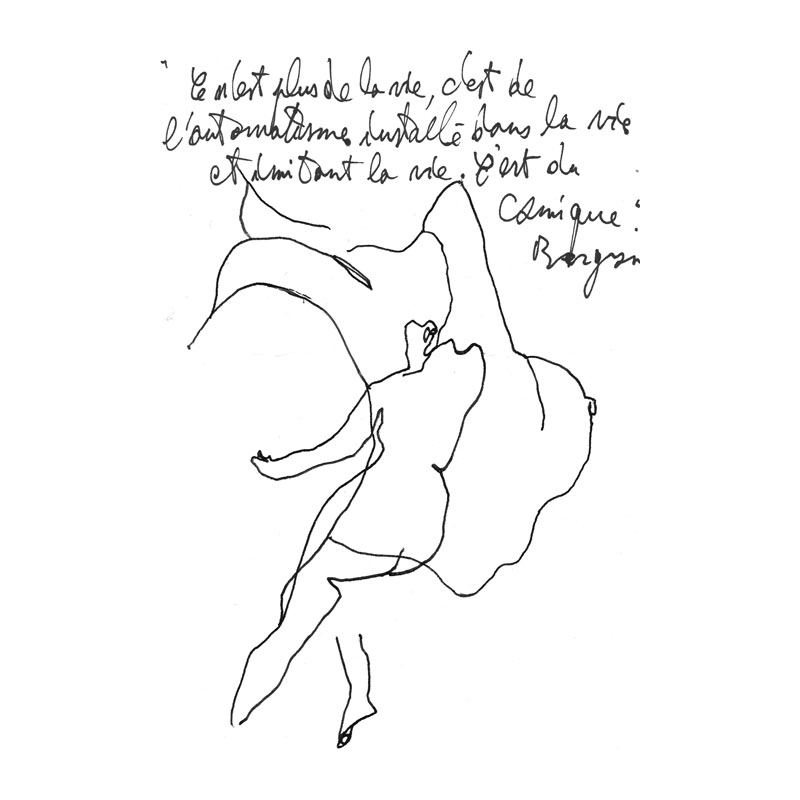 "Ce n'est plus de la vie, c'est de
l'automatisme installé dans la vie
et imitant la vie. C'est du
comique."
Bergson